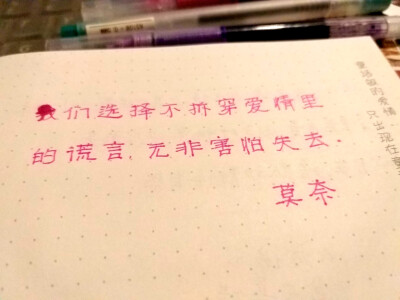 我们选择不拆穿爱情里
的谎言,无非害怕失去.
莫奈